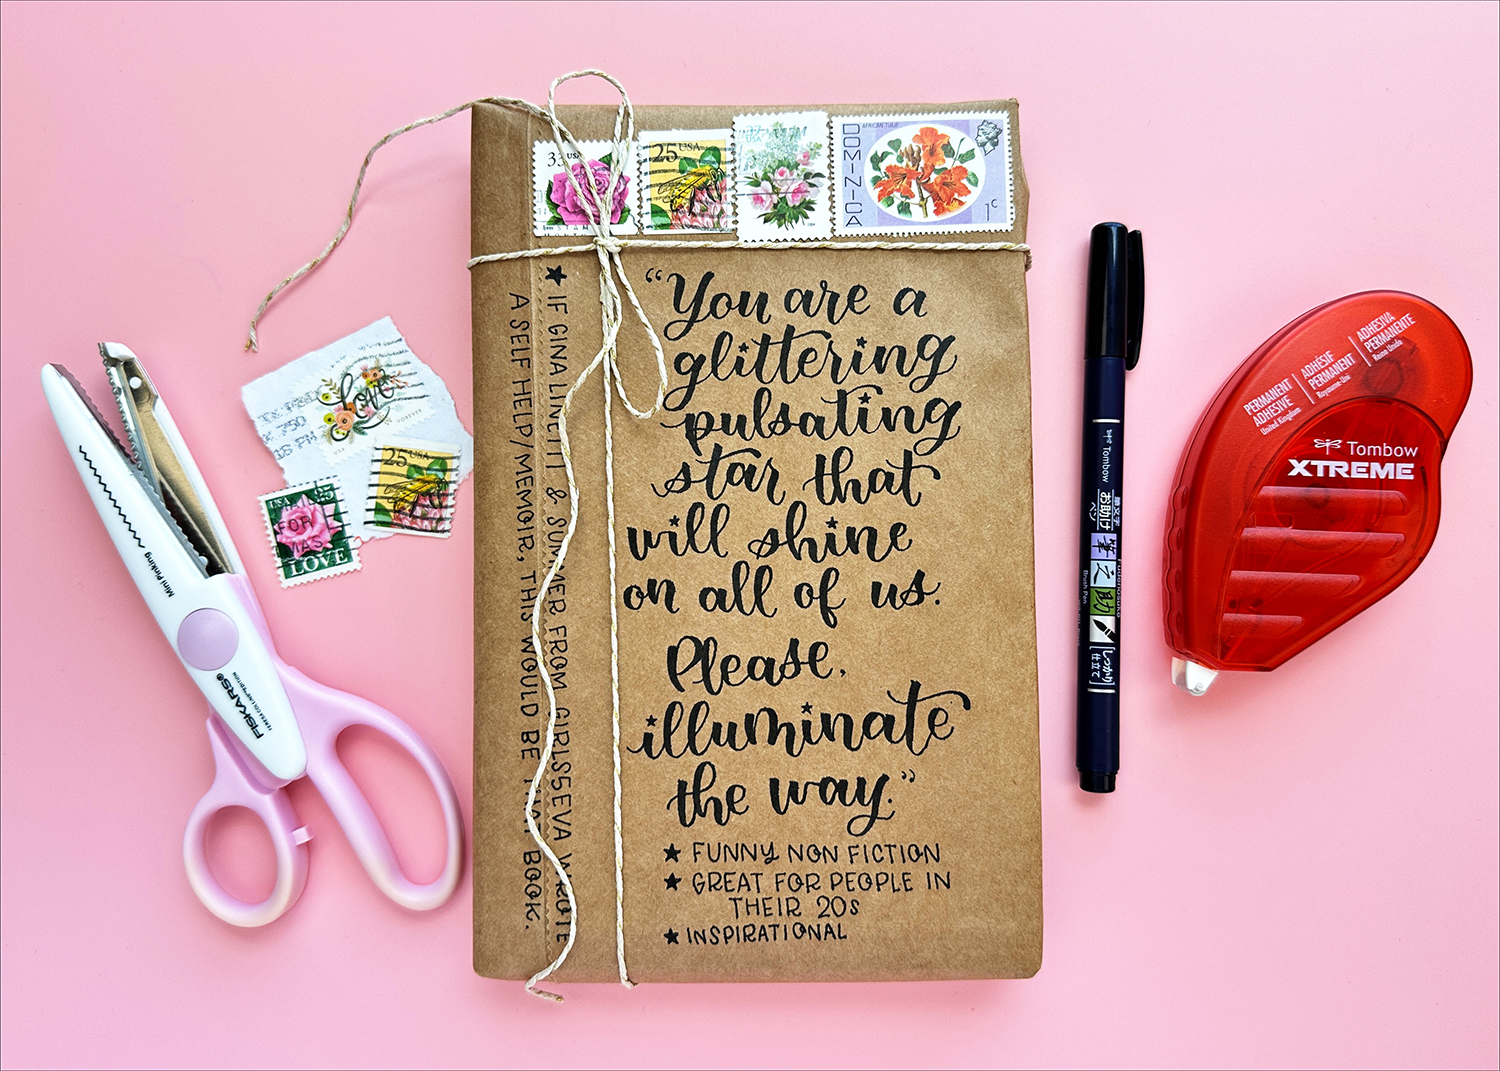 33 USA
25 USA
DOMINICA
AFRICAN TULIP
1c
“You are a
glittering
pulsating
star that
will shine
on all of us.
Please,
illuminate
the way.”
★ FUNNY NON FICTION
★ GREAT FOR PEOPLE IN
THEIR 20s
★ INSPIRATIONAL
★ IF GINA LINETTI & SUMMER FROM GIRLS5EVA WROTE
A SELF HELP/MEMOIR, THIS WOULD BE THAT BOOK.
FOREVER
25 USA
USA 25
FOR
LOVE
Mini Pinking
FISKARS®
Tombow
お助け
筆之助
Brush Pen
しっかり
仕立て
PERMANENT
ADHESIVE
United Kingdom
ADHÉSIF
PERMANENT
Royaume-Uni
ADHESIVA
PERMANENTE
Reino Unido
Tombow
XTREME